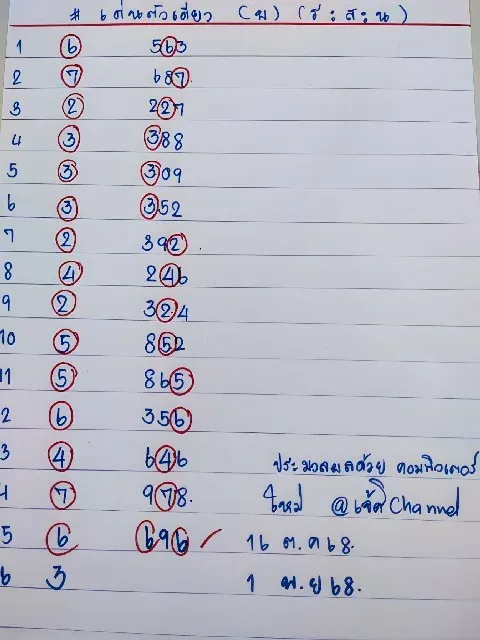 # เด่นตัวเดียว (บ) (ร:ส:น)
1 6 563
2 7 687.
3 2 227
4 3 388
5 3 309
6 3 352
7 2 392.
8 4 246
9 2 324
10 5 852
11 5 865
2 6 356
3 4 646 ประมวลผลด้วย คอมพิวเตอร์
4 7 978. ใหม่ @เจ้ติ Channel
5 6 696 / 16 ต.ค 68.
6 3 1 พ.ย 68.